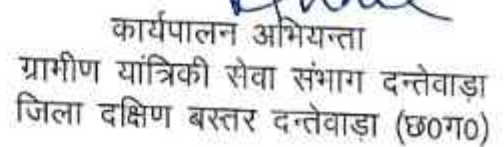 कार्यपालन अभियन्ता
ग्रामीण यांत्रिकी सेवा संभाग दन्तेवाड़ा
जिला दक्षिण बस्तर दन्तेवाड़ा (छ0ग0)